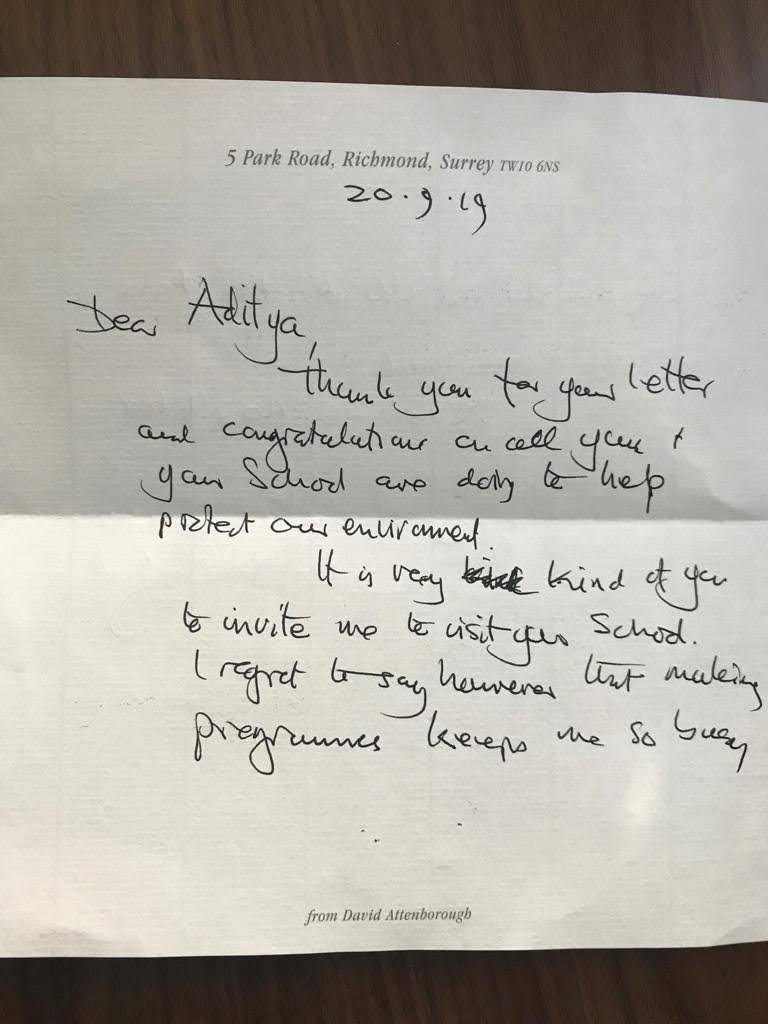 5 Park Road, Richmond, Surrey TW10 6NS
20.9.19
Dear Aditya,
Thank you for your letter
and congratulations on all you +
your School are doing to help
protect our environment.
It is very kind of you
to invite me to visit your School.
I regret to say however that making
programmes keeps me so busy
from David Attenborough